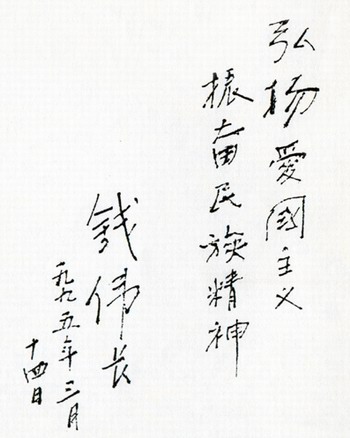 弘扬愛國主义
振奋民族精神
錢伟长
一九九五年三月
十四日